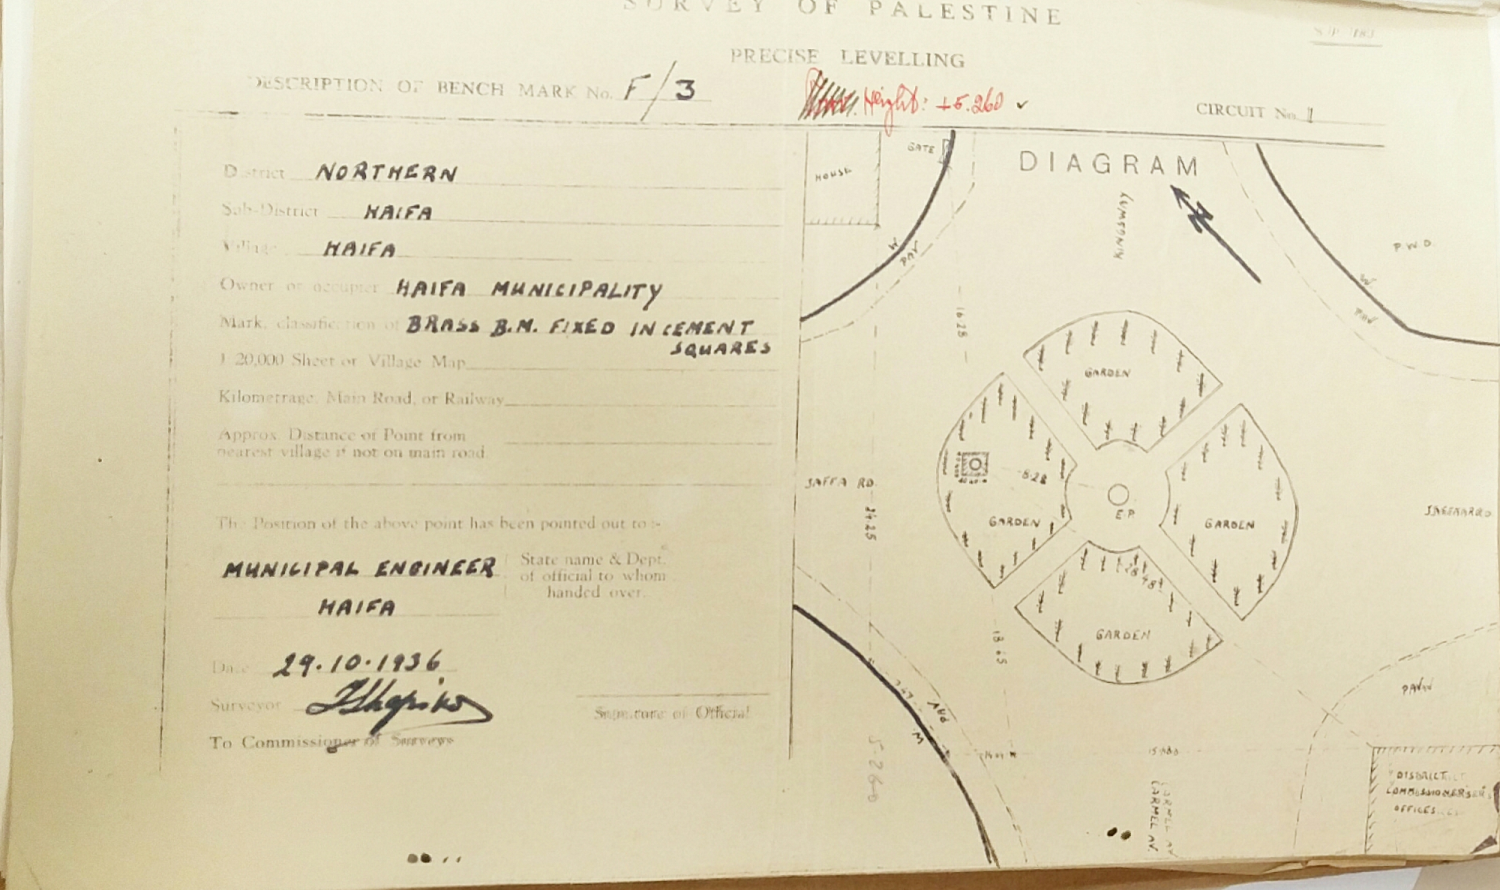 SURVEY OF PALESTINE
PRECISE LEVELLING
DESCRIPTION OF BENCH MARK No. F/3
Height: +5.260 ✓
CIRCUIT No. 1
District NORTHERN
Sub-District HAIFA
Village HAIFA
Owner or occupier HAIFA MUNICIPALITY
Mark, classification of BRASS B.M. FIXED IN CEMENT
SQUARES
1 20,000 Sheet or Village Map
Kilometrage, Main Road, or Railway
Approx. Distance of Point from
nearest village if not on main road.
The Position of the above point has been pointed out to :-
MUNICIPAL ENGINEER
HAIFA
State name & Dept.
of official to whom
handed over.
Date 29.10.1936
Surveyor
Signature of Official
To Commissioner of Surveys
DIAGRAM
HOUSE
GATE
W
PAV
P.W.D.
W
PAV
16.28
GARDEN
GARDEN
GARDEN
GARDEN
E.P.
JAFFA RD.
24.25
18.65
PAV
W
5.260
CARMEL AV.
CARMEL AV.
DISTRICT
COMMISSIONER'S
OFFICES